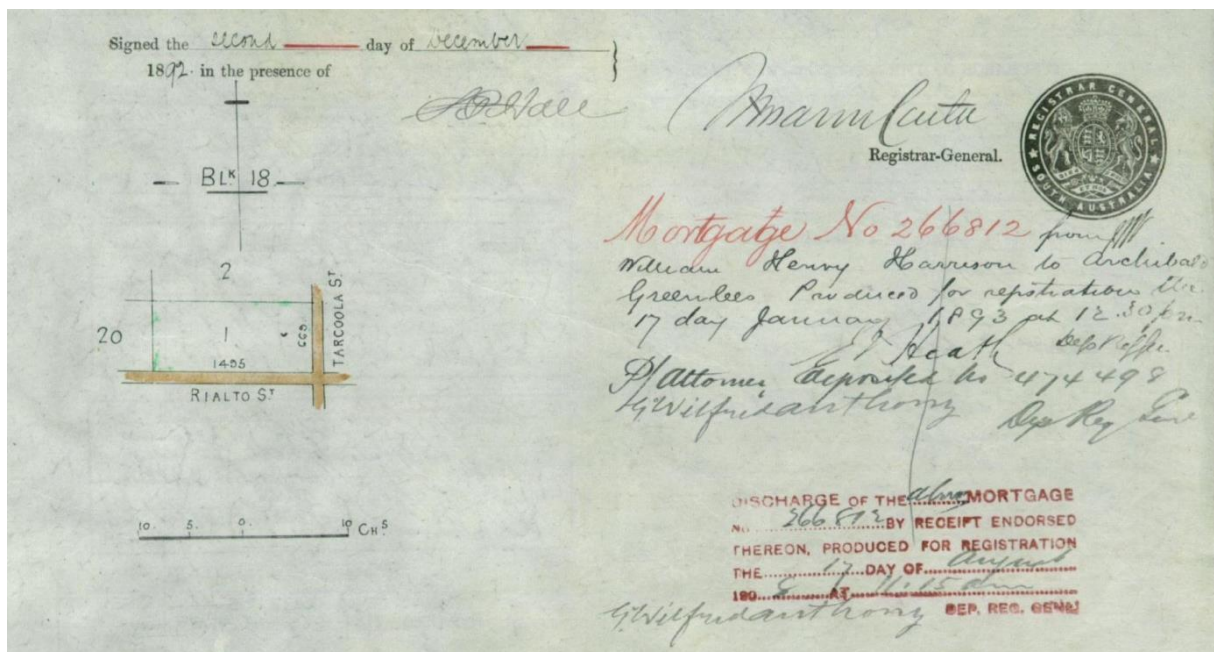 Signed the second day of December
1892. in the presence of
Registrar-General.
REGISTRAR GENERAL
SOUTH AUSTRALIA
BLK 18
2
20
1
1495
665
TARCOOLA ST
RIALTO ST
10. 5. 0. 10 CHS.
Mortgage No 266812 from
William Henry Harrison to Archibald
Greenlees Produced for registration the
17 day January 1893 at 12.30 pm
E J Heath Dep Reg Gen
P/Attorney deposited No 474498
G Wilfrid Anthony
Dep Reg Genl
DISCHARGE OF THE above MORTGAGE
No. 266812 BY RECEIPT ENDORSED
THEREON, PRODUCED FOR REGISTRATION
THE 17 DAY OF August
190 AT 11.15 am
G Wilfrid Anthony DEP. REG. GENL